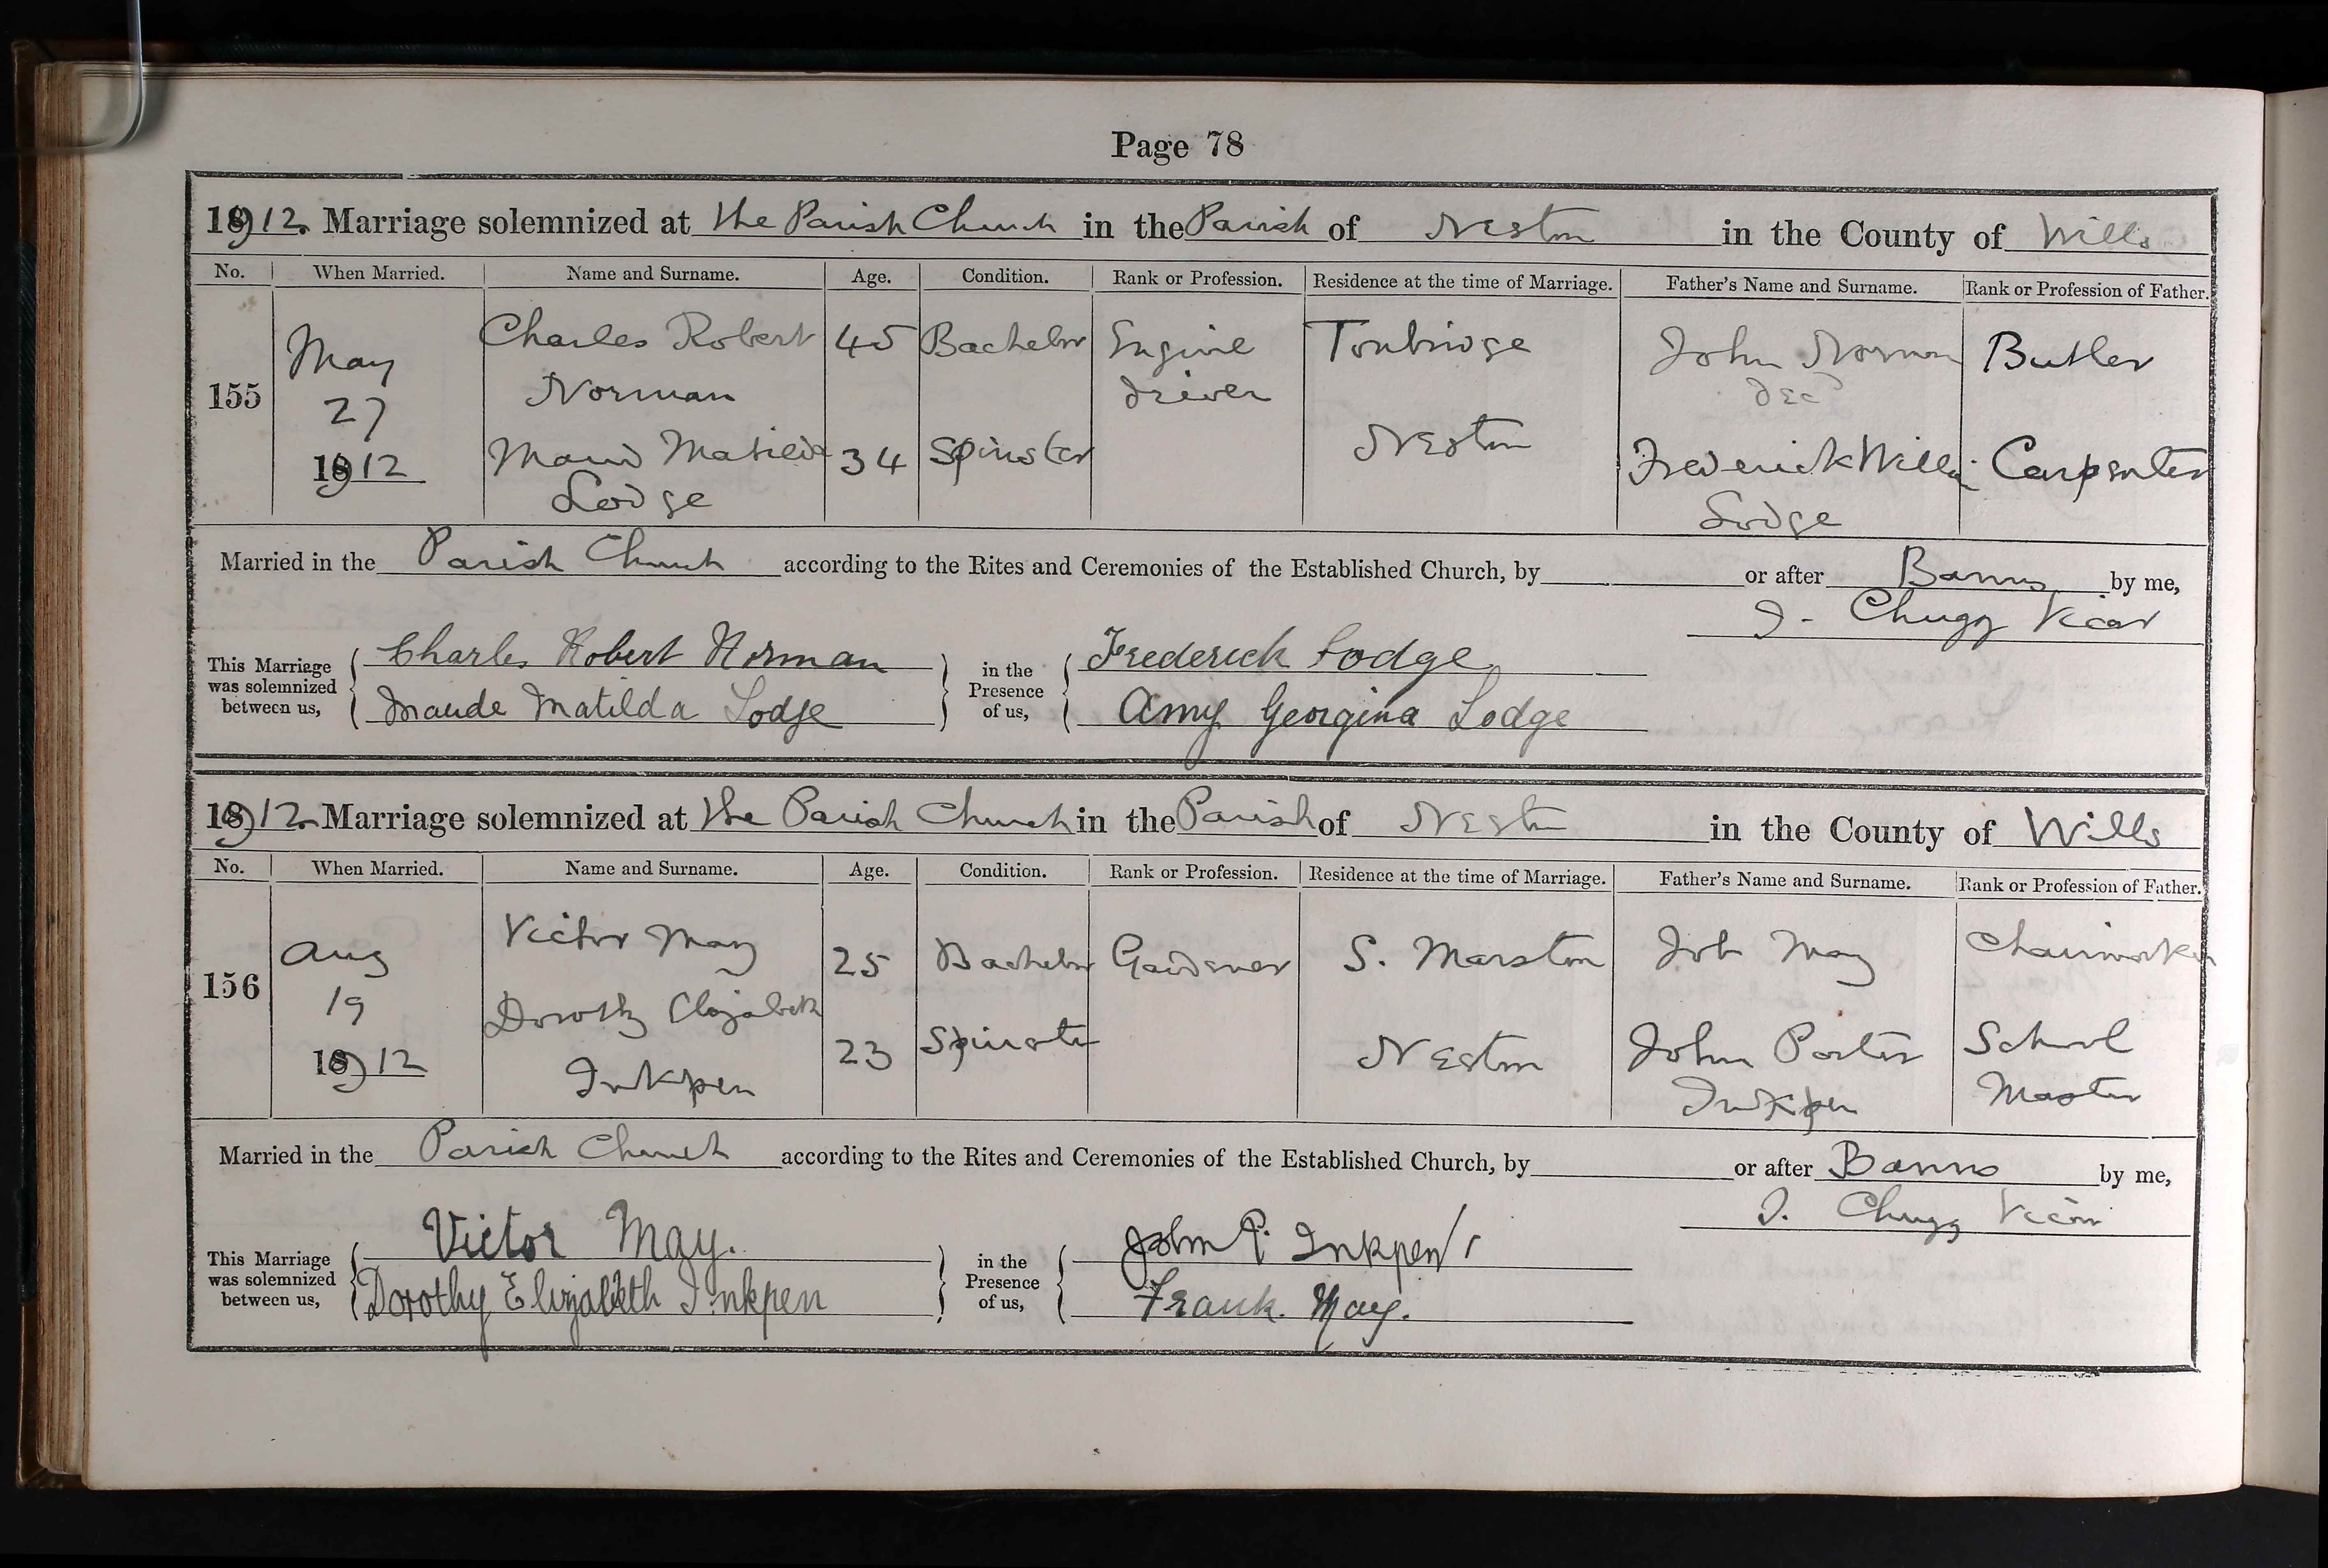 Page 78
1912. Marriage solemnized at the Parish Church in the Parish of Neston in the County of Wilts
No. When Married. Name and Surname. Age. Condition. Rank or Profession. Residence at the time of Marriage. Father's Name and Surname. Rank or Profession of Father.
155 May 27 1912 Charles Robert Norman 45 Bachelor Engine driver Tonbridge John Norman Dec Butler
Maud Matilda Lodge 34 Spinster Neston Frederick Carpenter
Lodge
Married in the Parish Church according to the Rites and Ceremonies of the Established Church, by or after Banns by me,
J. Chugg Vicar
This Marriage was solemnized between us, Charles Robert Norman in the Presence of us, Frederick Lodge
Maude Matilda Lodge Amy Georgina Lodge
1912. Marriage solemnized at the Parish Church in the Parish of Neston in the County of Wilts
No. When Married. Name and Surname. Age. Condition. Rank or Profession. Residence at the time of Marriage. Father's Name and Surname. Rank or Profession of Father.
156 Aug 19 1912 Victor May 25 Bachelor Gardener S. Marston Job May
Dorothy Elizabeth Inkpen 23 Spinster Neston John Porter Inkpen School Master
Married in the Parish Church according to the Rites and Ceremonies of the Established Church, by or after Banns by me,
J. Chugg Vicar
This Marriage was solemnized between us, Victor May. in the Presence of us, John P. Inkpen
Dorothy Elizabeth Inkpen Frank. May.